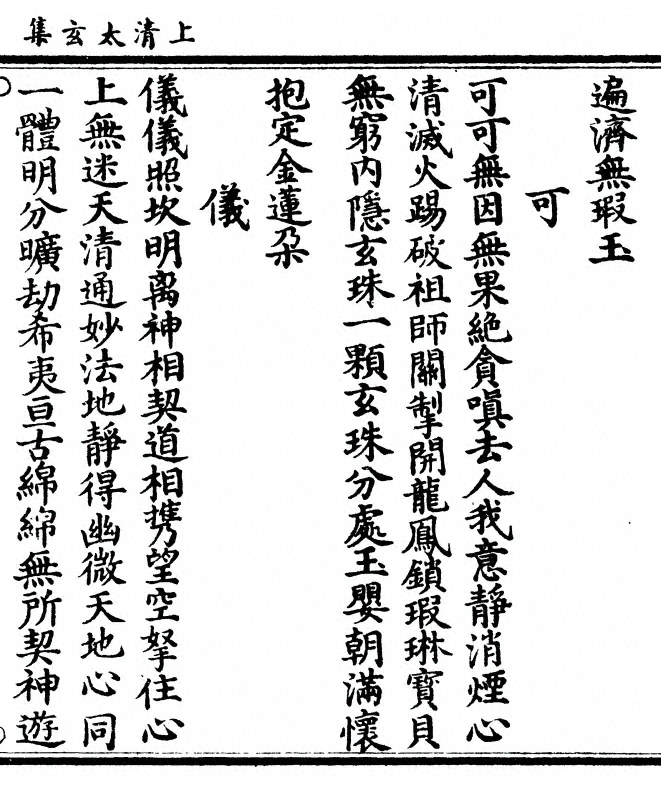 上清太玄集
遍濟無瑕玉
可
可可無因無果絶貪嗔去人我意靜消煙心
清滅火踢破祖師關掣開龍鳳鎖瑕琳寶貝
無窮内隱玄珠一顆玄珠分處玉嬰朝滿懷
抱定金蓮朶
儀
儀儀照坎明离神相契道相携望空拏住心
上無迷天清通妙法地靜得幽微天地心同
一體明分曠劫希夷亘古綿綿無所契神遊